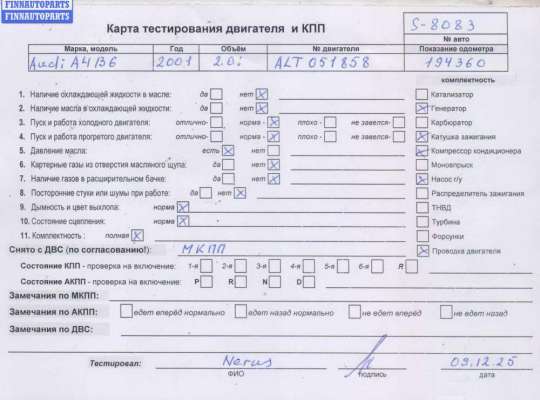 FINNAUTOPARTS
FINNAUTOPARTS
Карта тестирования двигателя и КПП
S-8083
№ авто
Марка, модель Год Объём № двигателя Показание одометра
Audi A4B6 2001 2.0i ALT 051858 194360
комплектность
1. Наличие охлаждающей жидкости в масле: да нет Катализатор
2. Наличие масла в охлаждающей жидкости: да нет Генератор
3. Пуск и работа холодного двигателя: отлично- норма - плохо - не завелся- Карбюратор
4. Пуск и работа прогретого двигателя: отлично- норма - плохо - не завелся- Катушка зажигания
5. Давление масла: есть нет Компрессор кондиционера
6. Картерные газы из отверстия масляного щупа: да нет Моновпрыск
7. Наличие газов в расширительном бачке: да нет Насос г/у
8. Посторонние стуки или шумы при работе: да нет Распределитель зажигания
9. Дымность и цвет выхлопа: норма ТНВД
10. Состояние сцепления: норма Турбина
11. Комплектность : полная Форсунки
Снято с ДВС (по согласованию!): МКПП Проводка двигателя
Состояние КПП - проверка на включение: 1-я 2-я 3-я 4-я 5-я 6-я R
Состояние АКПП - проверка на включение: P R N D
Замечания по МКПП:
Замечания по АКПП: едет вперёд нормально едет назад нормально не едет вперёд не едет назад
Замечания по ДВС:
Тестировал: Nerus 09.12.25
ФИО подпись дата